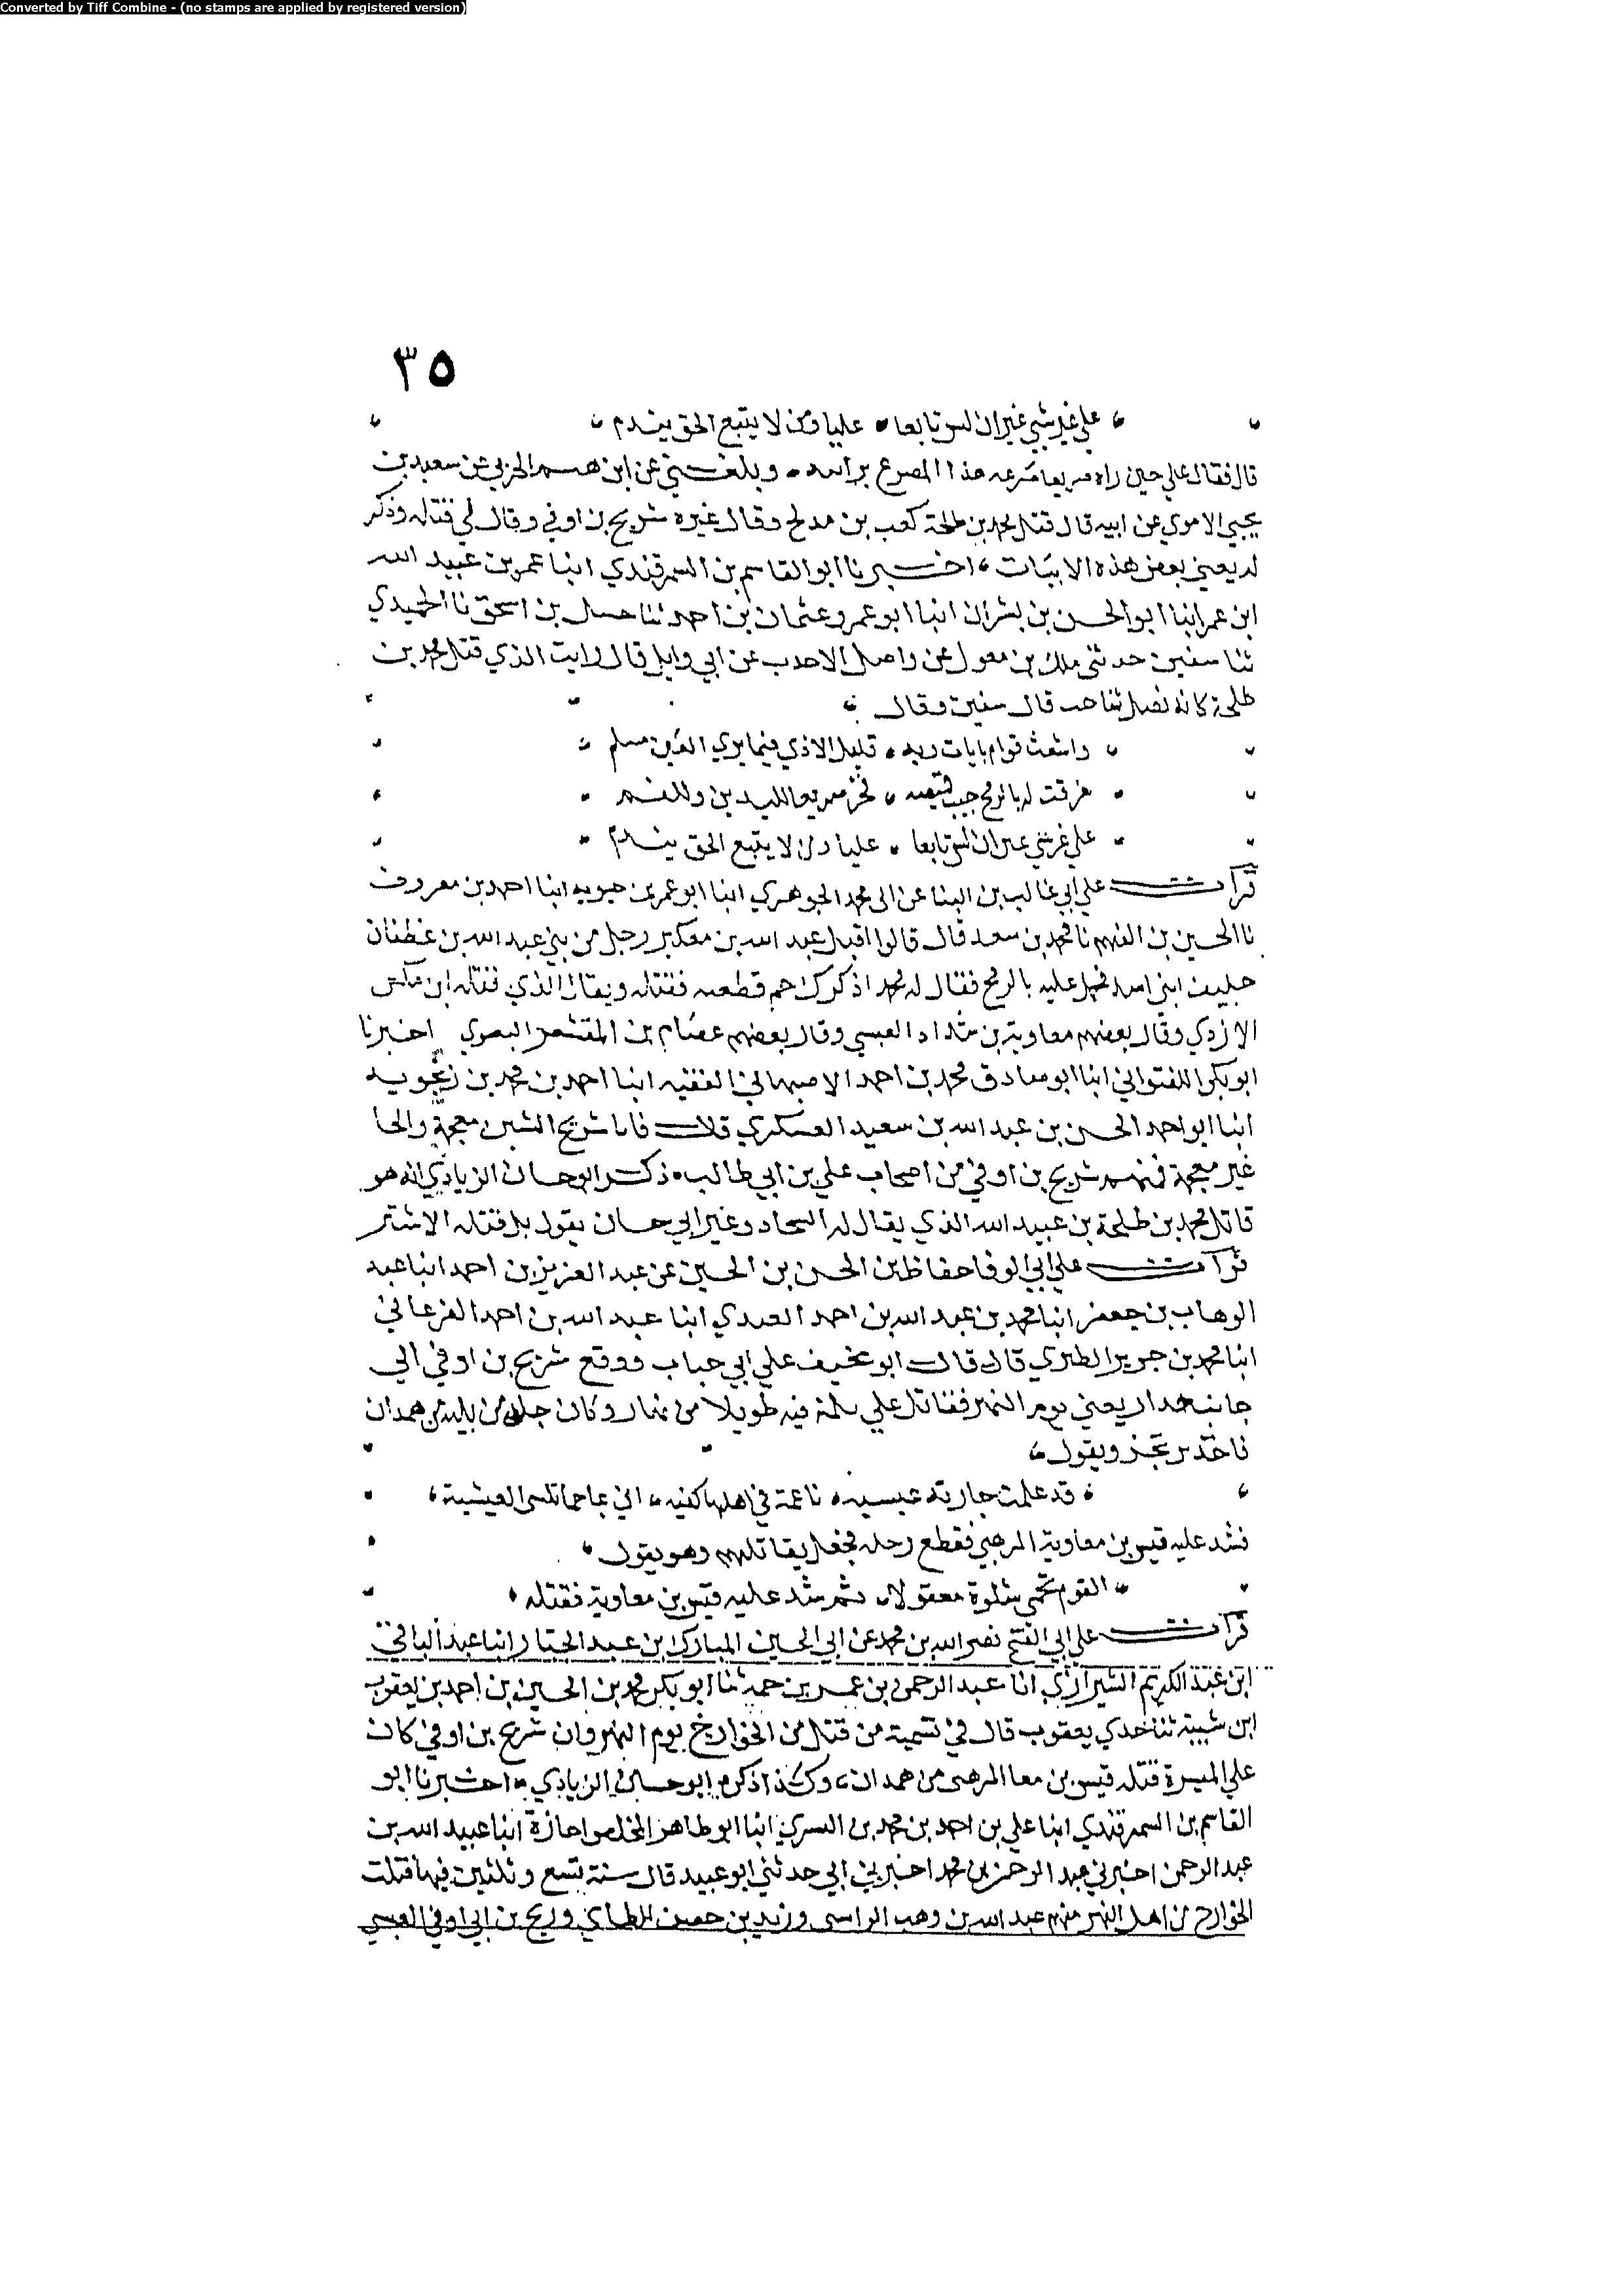 Converted by Tiff Combine - (no stamps are applied by registered version)
٣٥
علي غير شي غير ان ليس تابعا عليا ومن لا يتبع الحق يندم
قال فقال علي حين راه صريعا صرعه هذا المصرع بر ابيه وبلغني عن ابن هسم الحربي عن سعيد بن
يحيي الاموي عن ابيه قال قتل محمد بن طلحة كعب بن مدلج وقال غيره شريح بن اوفي وقال لي قتله وذكر
له يعني بعض هذه الابيات اخبرنا ابو القاسم بن السمرقندي انبا عمر بن عبيد الله
ابن عمر انبا ابو الحسن بن بشران انبا ابو عمرو عثمان بن احمد ثنا حنبل بن اسحق نا الحميدي
ثنا سفين حدثني ملك بن معول عن واصل الاحدب عن ابي وايل قال رايت الذي قتل محمد بن
طلحة كانه نصل قال سفين وقال
واشعث قوام بايات ربه قليل الاذي فيما يري العين مسلم
خرقت له بالرمح جيب قميصه فخر صريعا لليدين وللفم
علي غير شي غير ان ليس تابعا عليا ومن لا يتبع الحق يندم
قرات علي ابي غالب بن البنا عن ابي محمد الجوهري انبا ابو عمر بن حيويه انبا احمد بن معروف
نا الحسين بن الفهم نا محمد بن سعد قال قالوا اقبل عبد الله بن معكبر رجل من بني عبد الله بن غطفان
حليف لبني اسد فحمل عليه بالرمح فقال له محمد اذكرك حم فطعنه فقتله ويقال الذي قتله ابن مكيس
الازدي وقال بعضهم معاوية بن شداد العبسي وقال بعضهم عصام بن المقشعر البصري اخبرنا
ابو بكر اللفتواني انبا ابو صادق محمد بن احمد الاصبهاني الفقيه انبا احمد بن محمد بن زنجويه
انبا ابو احمد الحسن بن عبد الله بن سعيد العسكري قال فاما شريح الشين معجمة والحا
غير معجمة فمنهم شريح بن اوفي من اصحاب علي بن ابي طالب ذكر ابو حسان الزيادي انه هو
قاتل محمد بن طلحة بن عبيد الله الذي يقال له السجاد وغير ابي حسان يقول بل قتله الاشتر
قرات علي ابي الوفا حفاظ بن الحسن بن الحسين عن عبد العزيز بن احمد انبا عبد
الوهاب بن جعفر انبا محمد بن عبد الله بن احمد العبدي انبا عبد الله بن احمد الفرغاني
انبا محمد بن جرير الطبري قال قال ابو مخنف علي ابي جناب ووقع شريح بن اوفي الي
جانب جدار يعني يوم النهر فقاتل علي ثلمة فيه طويلا من نهار وكان جل من يليه من همدان
فاخذ يرتجز ويقول
قد علمت جارية عبسيه ناعمة في اهلها مكفيه اني ساحما ثلمتي العيشية
فشد عليه قيس بن معاوية المرهبي فقطع رجله فجعل يقاتلهم وهو يقول
القوم تحمي شلوة معقولا ثم شد عليه قيس بن معاوية فقتله
قرات علي ابي الفتح نصر الله بن محمد عن ابي الحسين المبارك بن عبد الجبار انبا عبد الباقي
ابن عبد الكريم الشيرازي انا عبد الرحمن بن عمر بن حمة ثنا ابو بكر محمد بن الحسين بن احمد بن يعقوب
ابن شيبة ثنا جدي يعقوب قال في تسمية من قتل من الخوارج يوم النهروان شريح بن اوفي كان
علي الميسرة قتله قيس بن معا المرهبي من همدان وكذا ذكره ابو حسان الزيادي اخبرنا ابو
القاسم بن السمرقندي انبا علي بن احمد بن محمد بن البسري انبا ابو طاهر المخلص اجازة انبا عبيد الله بن
عبد الرحمن اخبرني عبد الرحمن بن محمد اخبرني ابي حدثني ابو عبيد قال سنة تسع وثلثين فيها قتلت
الخوارج من اهل النهر منهم عبد الله بن وهب الراسبي وزيد بن حصين الطاي وريح بن ابي اوفي العبسي